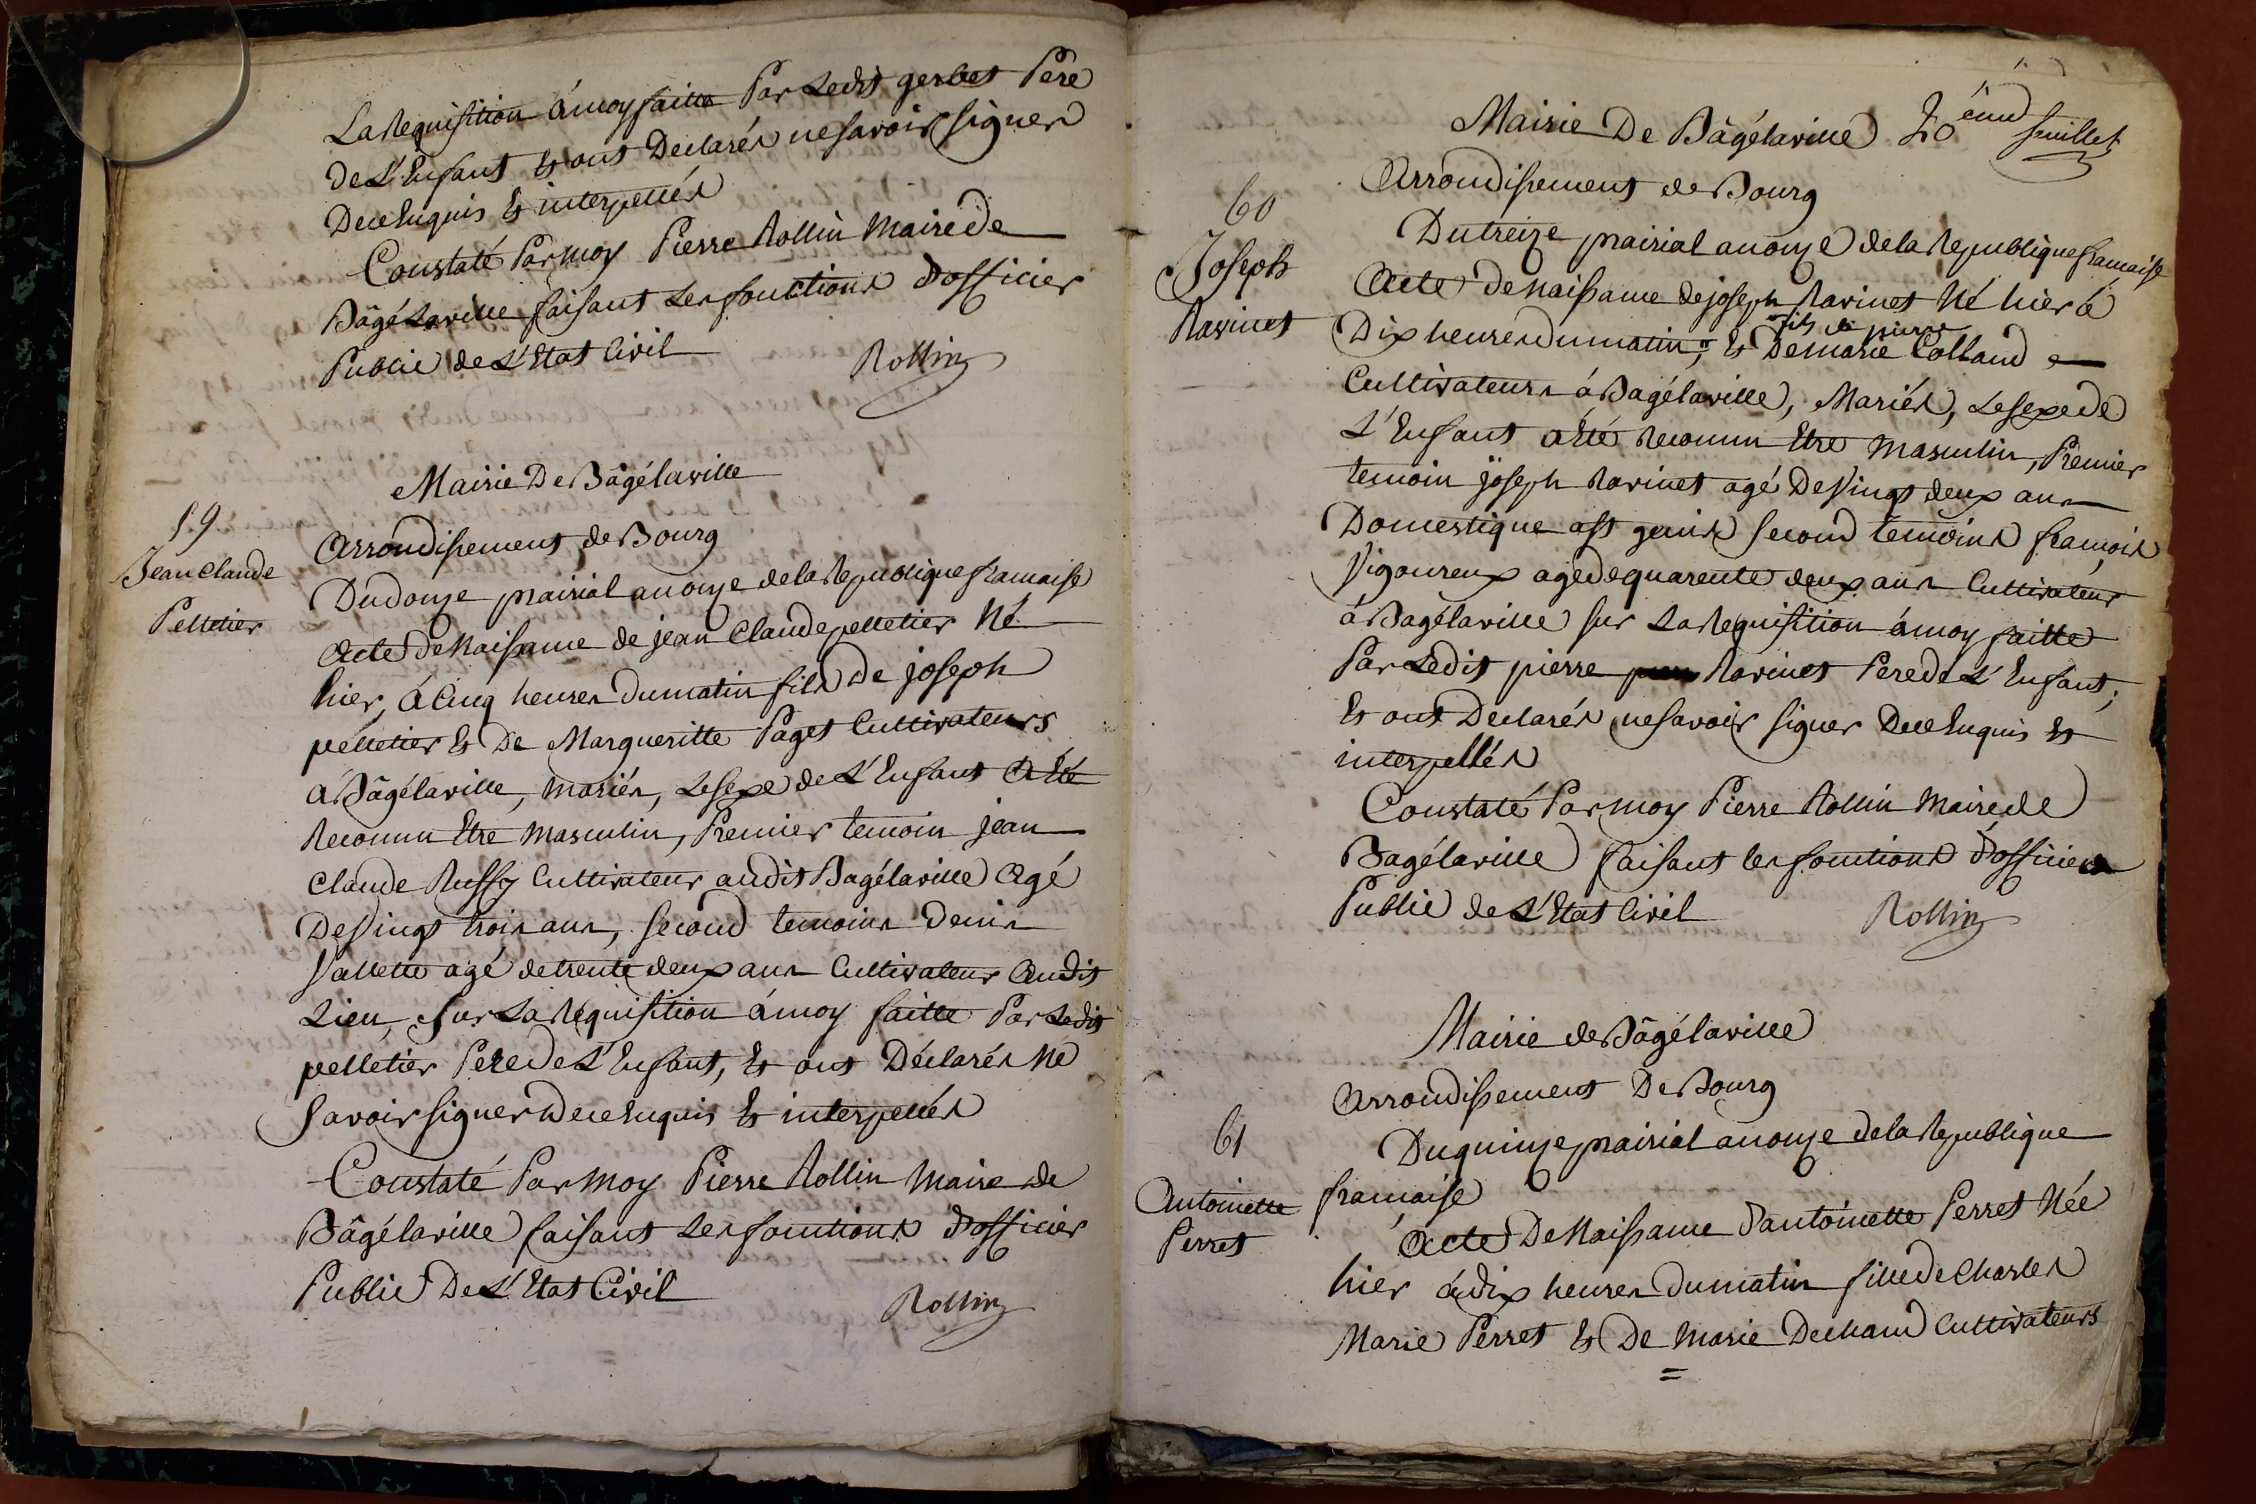 La Requisition à moy faitte Par Ledit gerbet Pere
de L'Enfant Et ont Declarés ne savoir signer
De ce Enquis Et interpellés
Constaté Par moy Pierre Rollin Maire de
Bâgé Laville faisant Les fonctions d'officier
Public de L'Etat Civil
Rollin
Mairie De Bâgélaville
59
Jean Claude
Pelletier
Arrondissement de Bourg
Du douze prairial an onze de la Republique francaise
Acte de Naissance de jean Claude pelletier Né
hier, à Cinq heures du matin fils de joseph
pelletier Et De Margueritte Paget Cultivateurs
à Bâgélaville, mariés, Le sexe de L'Enfant a Eté
Reconnu Etre Masculin, Premier temoin jean
Claude Ruffy Cultivateur audit Bagélaville Agé
De Vingt trois ans, second temoins Denis
Vallette agé de trente deux ans Cultivateur Audit
Lieu, sur La Requisition à moy faitte Par Ledit
pelletier Pere de L'Enfant, Et ont Déclarés Ne
savoir signer De ce Enquis Et interpellés
Constaté Par Moy Pierre Rollin Maire de
Bâgélaville faisant Les fonctions d'officier
Public De L'Etat Civil
Rollin
Mairie De Bâgélaville
20 eme feuillet
Arrondissement de Bourg
60
Joseph
Ravinet
Du treize prairial an onze de la Republique francaise
Acte de Naissance de joseph Ravinet Né hier à
fils de pierre
Dix heures du matin, Et De marie Colland
Cultivateurs à Bagélaville, Mariés, Le sexe de
L'Enfant a Eté Reconnu Etre Masculin, Premier
temoin joseph Ravinet agé De Vingt deux ans
Domestique à St genis second temoins francois
Vigoureux agé de quarente deux ans Cultivateur
à Bagélaville sur La Requisition à moy faitte
Par Ledit pierre Ravinet Pere de L'Enfant;
Et ont Declarés ne savoir signer De ce Enquis Et
interpellés
Constaté Par Moy Pierre Rollin Maire de
Bagélaville faisant les fonctions d'officier
Public de L'Etat Civil
Rollin
Mairie de Bâgélaville
Arrondissement De Bourg
61
Antoinette
Perret
Du quinze prairial an onze de la Republique
francaise
Acte De Naissance d'antoinette Perret Née
hier à dix heures du matin fille de Charles
Marie Perret Et De Marie Dechaud Cultivateurs
=